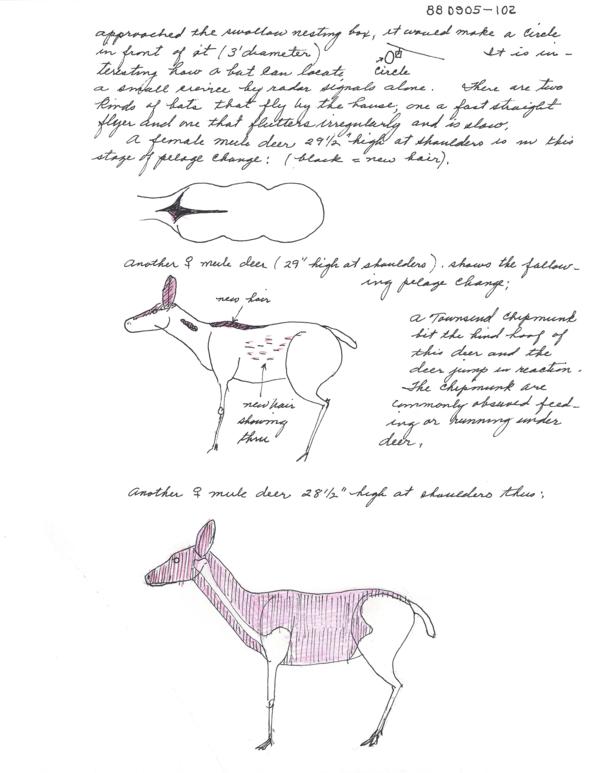 88 D905-102
approached the swallow nesting box, it would make a circle
in front of it (3' diameter)
It is in-
circle
teresting how a bat can locate,
a small crevice by radar signals alone. There are two
kinds of bats that fly by the house, one a fast straight
flyer and one that flutters irregularly and is slow.
A female mule deer 29 1/2" high at shoulders is in this
stage of pelage change: (black = new hair).
Another ♀ mule deer (29" high at shoulders). shows the follow-
ing pelage change;
new hair
new hair
showing
thru
a Townsend chipmunk
bit the hind hoof of
this deer and the
deer jump in reaction.
The chipmunk are
commonly observed feed-
ing or running under
deer.
Another ♀ mule deer 28 1/2" high at shoulders thus: